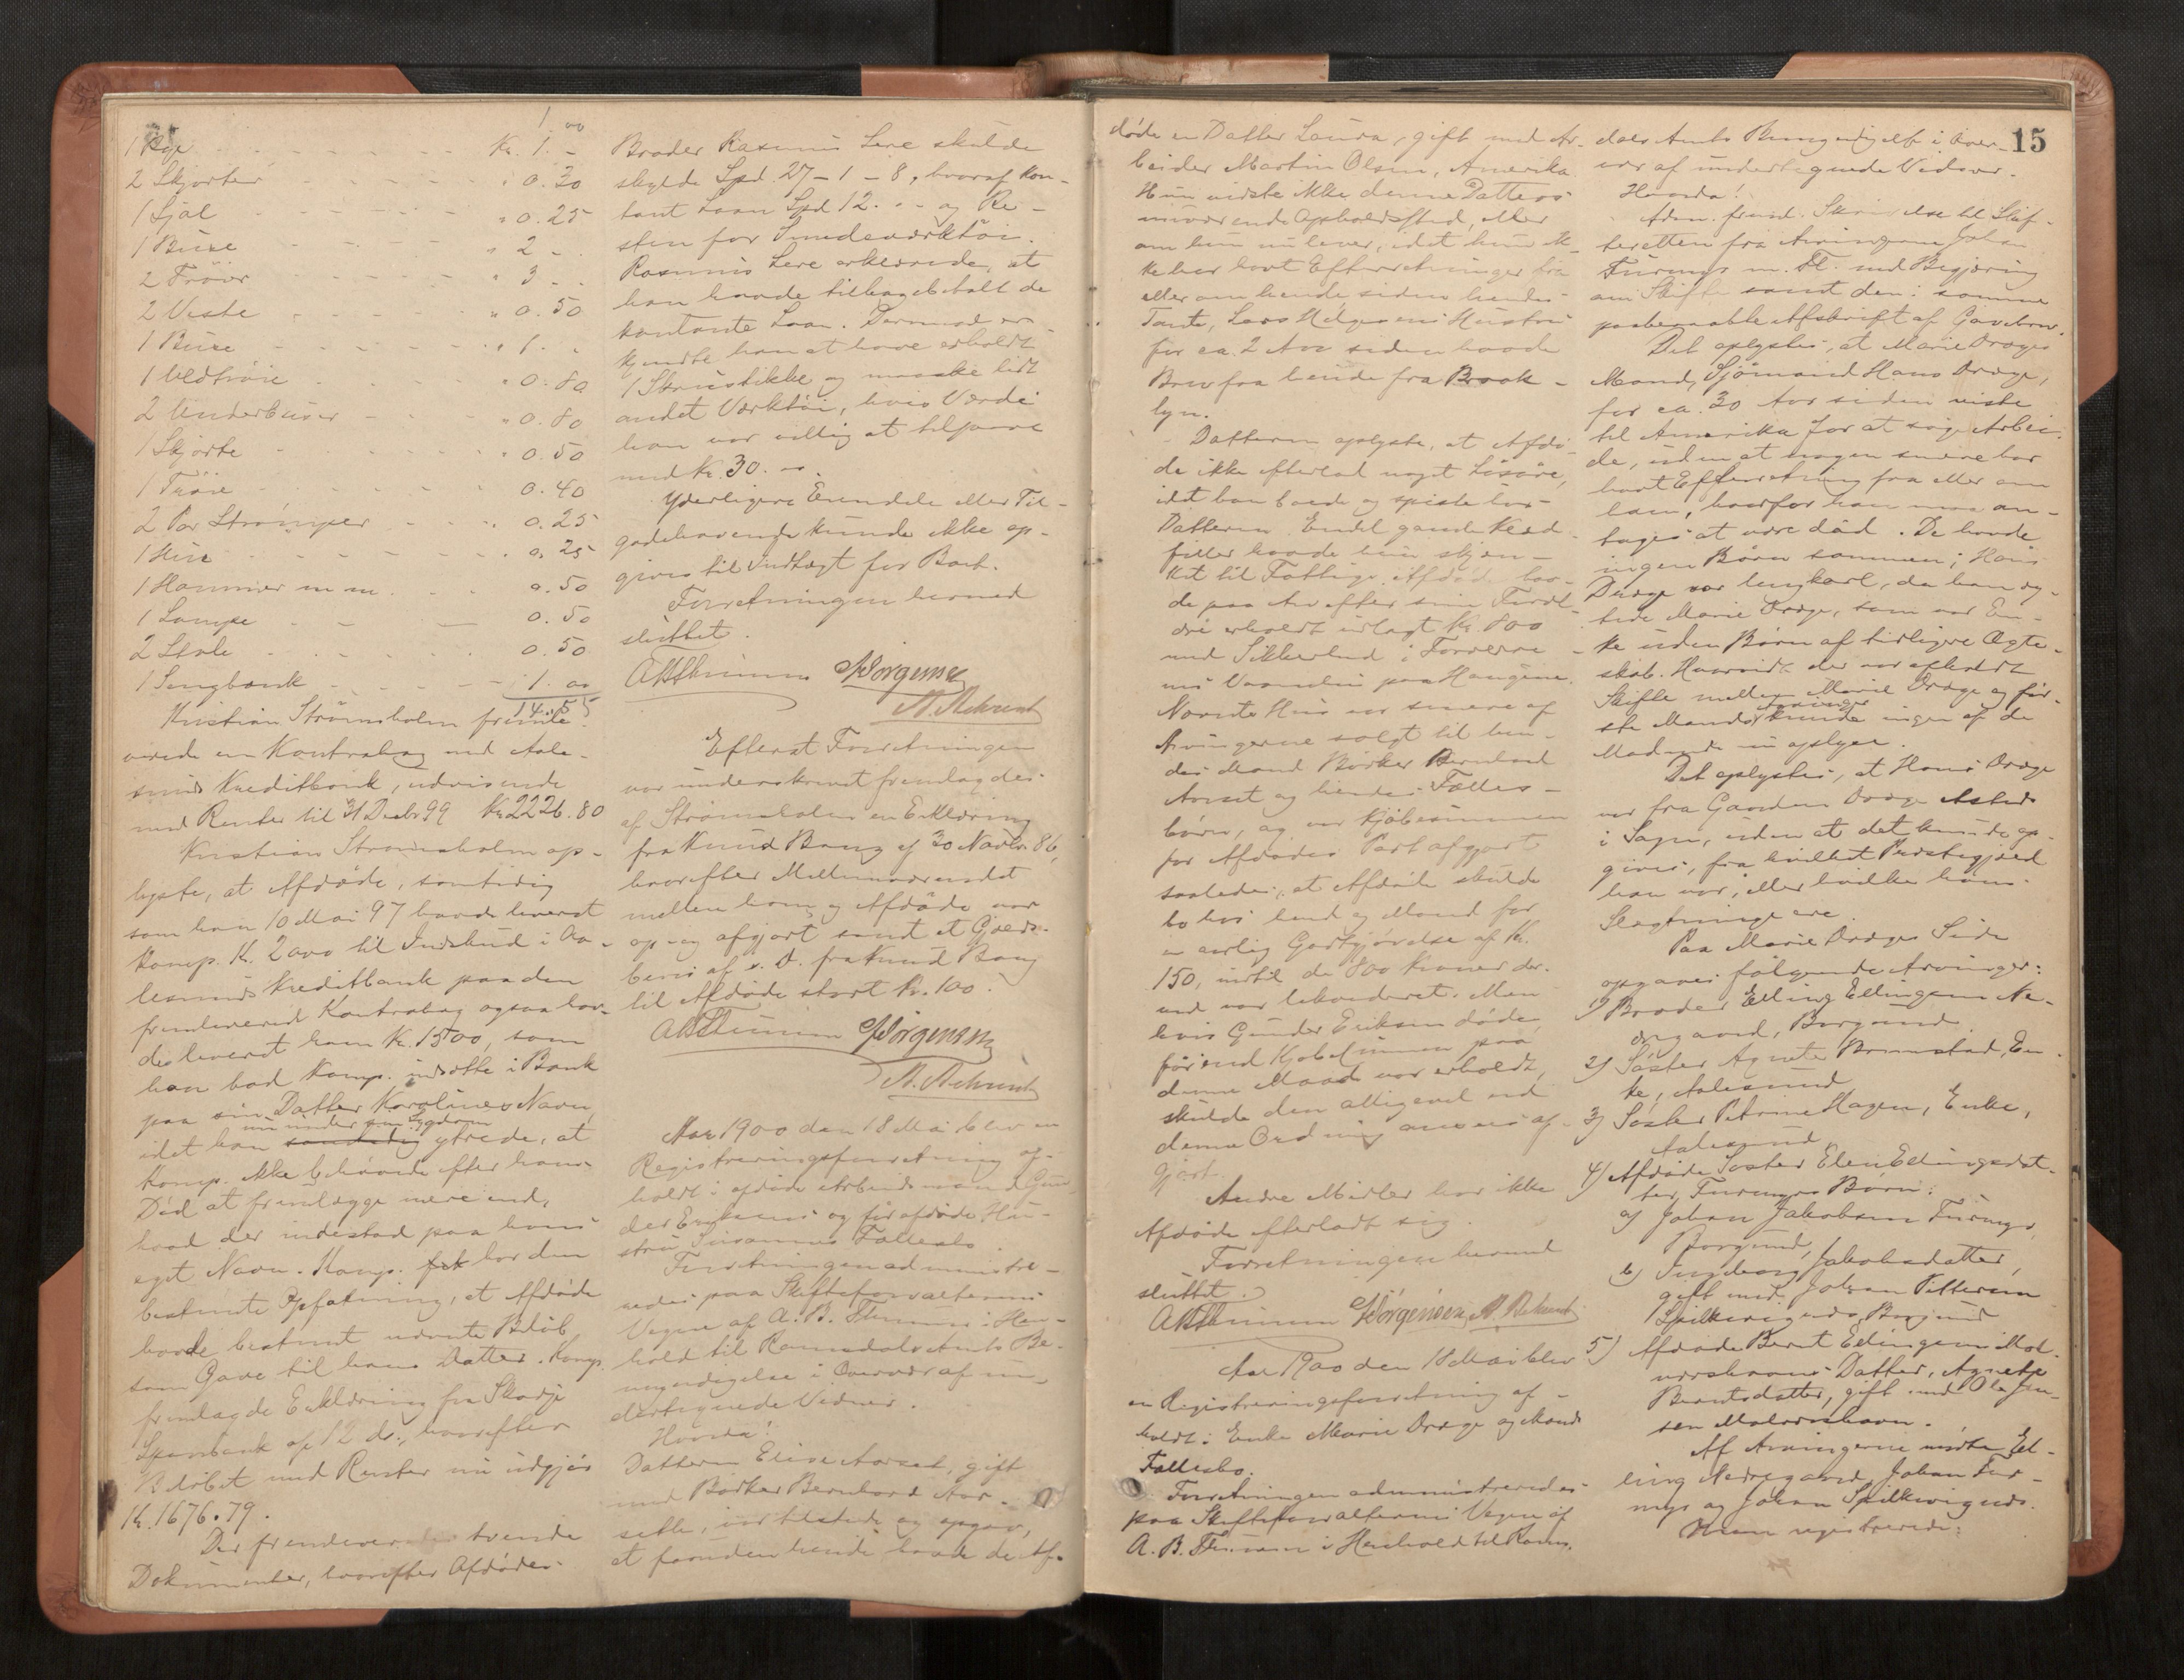 1 00
1 Øxe - - - - - Kr. 1. -
2 Skjorter - - - - " 0.30
1 Sjal - - - - " 0.25
1 Buxe - - - - " 2 -
2 Trøier - - - - " 3 -
2 Veste - - - - " 0.50
1 Buxe - - - - " 1.
1 Uldtrøie - - - " 0.80
2 Underbuxer - - " 0.80
1 Skjorte - - - " 0.50
1 Trøie - - - - 0.40
2 Par Strømper - - 0.25
1 Hue - - - - 0.25
1 Hammer m m. - - 0.50
1 Lampe - - - 0.50
2 Stole - - - - 0.50
1 Sengbænk - - - 1.00
14.55
Kristian Strømsholm fremle-
verede en Kontrabog med Aale-
sunds Kreditbank, udvisende
med Renter til 31 Decbr 99 Kr 2226.80
Kristian Strømsholm op-
lyste, at Afdøde, samtidig
som han 10 Mai 97 havde leveret
Komp. Kr. 2000 til Indskud i Aa-
lesunds Kreditbank paa den
fremleverede Kontrabog ogsaa hav-
de leveret ham Kr. 1500, som
han bad Komp. indsætte i Bank
paa sin Datter Karolines Navn,
nu under sin Sygdom
idet han samtidig ytrede, at
Komp. ikke behøvede efter hans
Død at fremlægge mere end,
hvad der indestod paa hans
eget Navn. Komp. fik har den
bestemte Opfatning, at Afdøde
havde bestemt nævnte Beløb
som Gave til hans Datter. Komp.
fremlagde Erklæring fra Skodje
Sparebank af 12 ds., hvorefter
Beløbet med Renter nu udgjør
Kr. 1676.79.
Der fremleveredes tvende
Dokumenter, hvorefter Afdødes
Broder Rasmus Lere skulde
skylde Spd. 27-1-8, hvoraf kon-
tant Laan Spd 12. - - og Re-
sten for Smedeværktøi.
Rasmus Lere erklærede, at
han havde tilbagebetalt de
kontante Laan. Dermod er-
kjendte han at have erholdt
1 Skruestikke og maaske lidt
andet Værktøi, hvis Værdi
han var villig at tilsvare
med Kr. 30. -.
Yderligere Eiendele eller Til-
godehavende kunde ikke op-
gives til Indtægt for Boet.
Forretningen hermed
sluttet.
ABThunem Jørgensen
N. Rekvent
Efterat Forretningen
var underskrevet fremlagdes
af Strømsholm en Erklæring
fra Knud Bang af 30 Novbr 86,
hvorefter Mellemværendet
mellem ham og Afdøde var
op- og afgjort samt et Gjælds-
bevis af s. D. fra Knud Bang
til Afdøde stort Kr. 100.
ABThunem Jørgensen
N. Rekvent
Aar 1900 den 18 Mai blev en
Registreringsforretning af-
holdt i afdøde Arbeidsmand Gun-
der Eriksens og før afdøde Hu-
stru Susannes Fællesbo.
Forretningen administre-
redes paa Skifteforvalterens
Vegne af A. B. Thunem i Hen-
hold til Romsdals Amts Be-
myndigelse i Overvær af un-
dertegnede Vidner.
Hvorda!
Datteren Elise Aarset, gift
med Bødker Bernhard Aar-
seth, var tilstede og opgav,
at foruden hende havde de Af-
15
døde en Datter Laura, gift med Ar-
beider Martin Olsen, Amerika.
Hun vidste ikke denne Datters
nuværende Opholdssted, eller
om hun nu lever, idet hun ik-
ke har havt Efterretninger fra
eller om hende siden hendes
Tante, Lars Helgesens Hustru
for ca. 2 Aar siden havde
Brev fra hende fra Brook-
lyn.
Datteren oplyste, at Afdø-
de ikke efterlod noget Løsøre,
idet han boede og spiste hos
Datteren. Endel gamle Klæd-
filler havde hun skjæn-
ket til Fattige. Afdøde hav-
de paa Arv efter sine Foræl-
dre erholdt udlagt Kr. 800
med Sikkerhed i Forældre-
nes Vaaning paa Haugene.
Nævnte Hus er senere af
Arvingerne solgt til hen-
des Mand Bødker Bernhard
Aarset og hendes Fælles-
børn, og var Kjøbesummen
for Afdødes Part afgjort
saaledes, at Afdøde skulde
bo hos hend og Mand for
en aarlig Godtgjørelse af Kr.
150, indtil de 800 Kroner der-
ved var likvideret. Men
hvis Gunder Eriksen døde
førend Kjøbesummen paa
denne Maade var erholdt,
skulde den alligevel ved
denne Ordning ansees af-
gjort.
Andre Midler har ikke
Afdøde efterladt sig.
Forretningen hermed
sluttet.
ABThunem Jørgensen N. Rekvent
Aar 1900 den 18 Mai blev
en Registreringsforretning af-
holdt i Enke Marie Drage og Mands
Fællesbo.
Forretningen administreredes
paa Skifteforvalterens Vegne af
A. B. Thunem i Henhold til Roms-
dals Amts Bemyndigelse i Over-
vær af undertegnede Vidner.
Hvorda!
Adm. freml. Skrivelse til Skif-
teretten fra Arvingerne Johan
Furmyr m. Fl. med Begjæring
om Skifte samt den i samme
paaberaabte Afskrift af Gavebrev.
Det oplystes, at Marie Drages
Mand, Sjømand Hans Drage,
for ca. 30 Aar siden reiste
til Amerika for at søge Arbei-
de, uden at nogen senere har
havt Efterretning fra eller om
ham, hvorfor han maa an-
tages at være død. De havde
ingen Børn sammen; Hans
Drage var Ungkarl, da han æg-
tede Marie Drage, som var En-
ke uden Børn af tidligere Ægte-
skab. Hvorvidt der var afholdt
Skifte mellem Marie Drage og før-
ste Mands Arvinger kunde ingen af de
Mødende nu oplyse.
Det oplystes, at Hans Drage
var fra Gaarden Drage etsteds
i Sogn, uden at det kunde op-
gives, fra hvilket Præstegjæld
han var, eller hvilke hans
Slægtninge ere.
Paa Marie Drages Side
opgaves følgende Arvinger:
1) Broder Elling Ellingsen Ne-
dregaard, Borgund.
2) Søster Agnete Brunstad, En-
ke, Aalesund.
3) Søster Petrine Hagen, Enke,
Aalesund.
4) Afdøde Søster Elen Ellingsdat-
ter Furmyrs Børn:
a) Johan Jakobsen Furmyr,
Borgund,
b) Ingeborg Jakobsdatter,
gift med Johan Pettersen
Spilkevignes, Borgund
5) Afdøde Bernt Ellingsen Mol-
værshavns Datter, Agnethe
Berntsdatter, gift med Ole Jen-
sen Molværshavn.
Af Arvingerne mødte El-
ling Nedregaard, Johan Fur-
myr og Johan Spilkevignes.
Man registrerede: